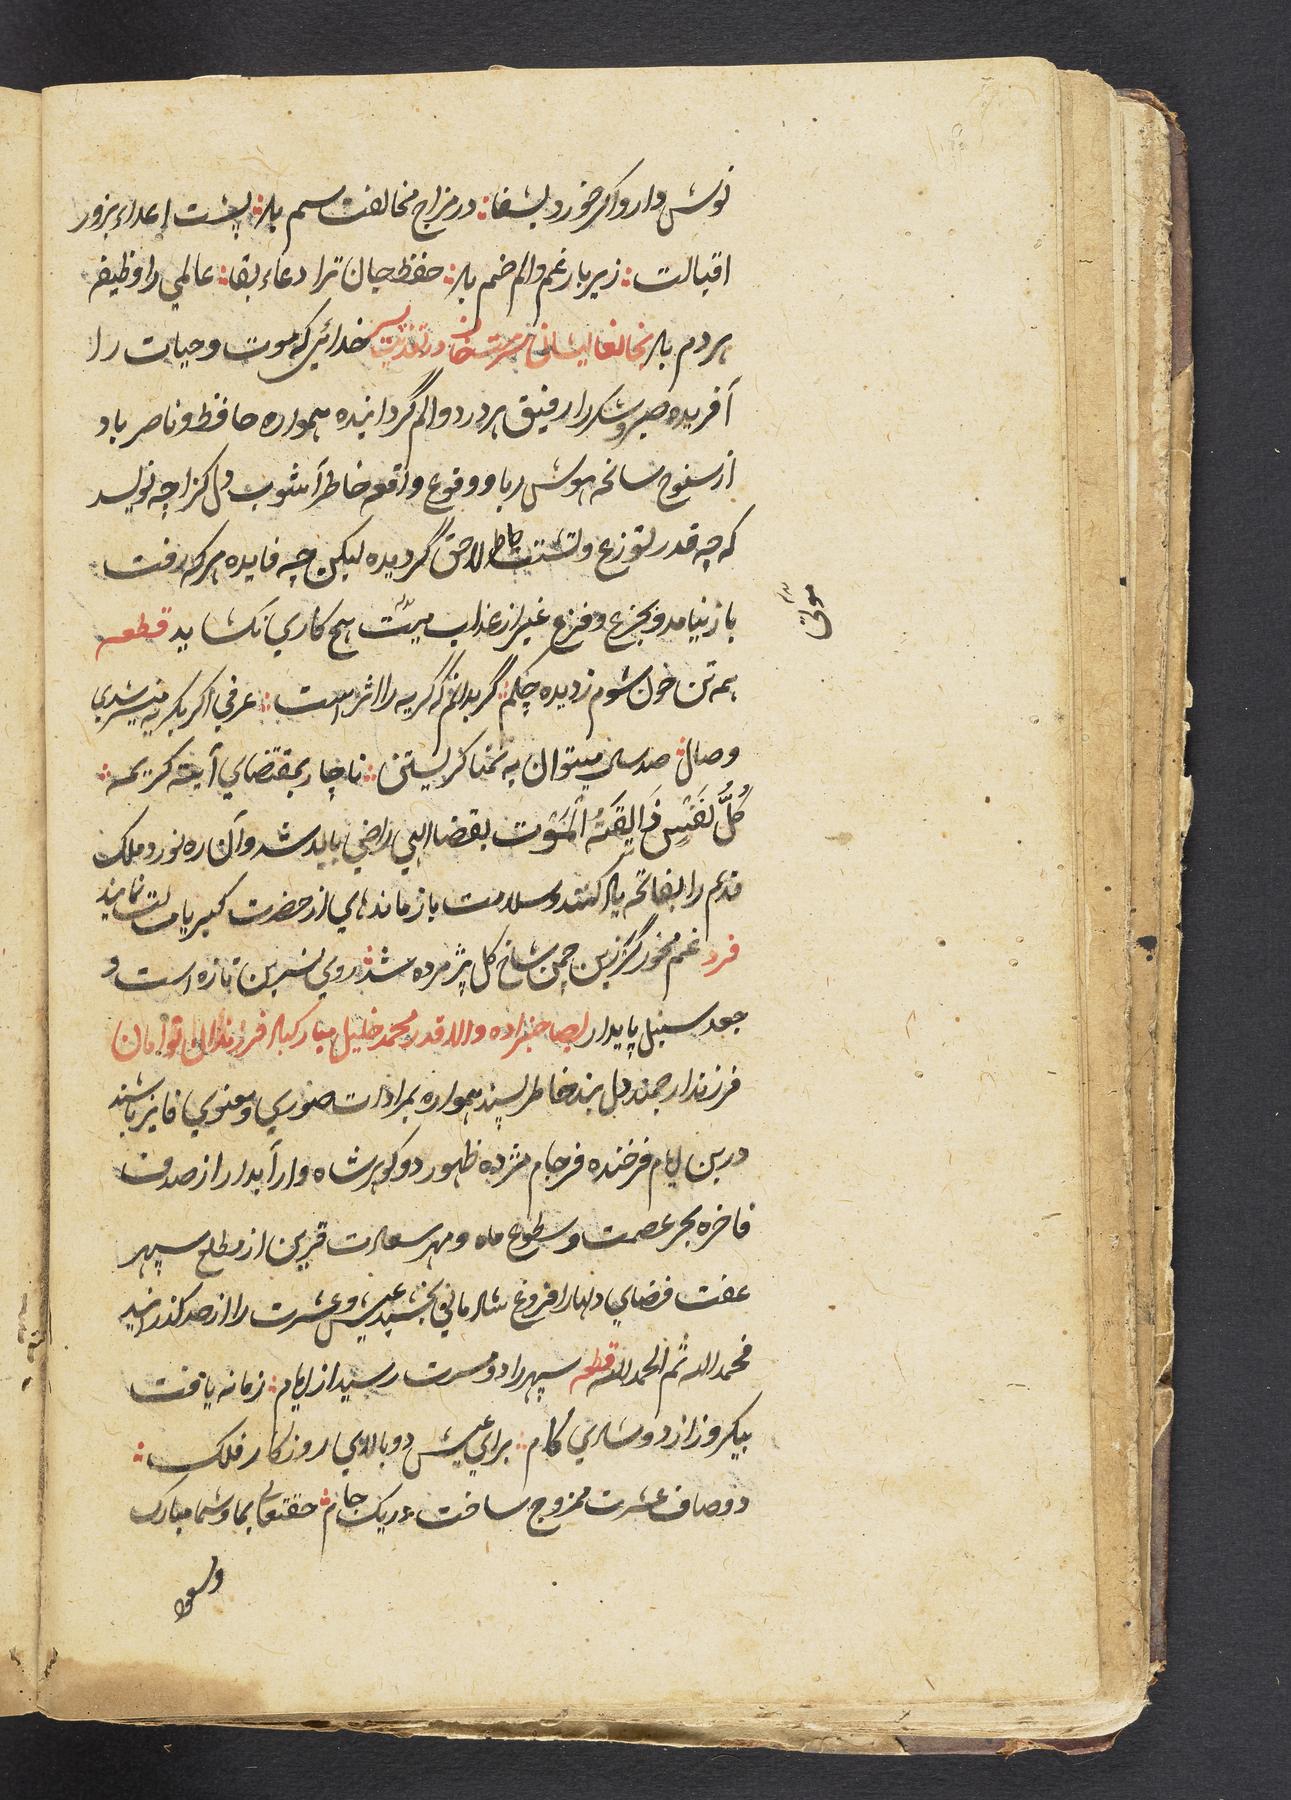 نوش دارو اگر خورد بشفا؛ در مزاج مخالفت سم باد؛ پشت اعداء بزور
اقبالت؛ زیر بار غم و الم خم باد؛ حفظ جان ترا دعاء بقا؛ عالمی را وظیفه
هر دم باد بخانعالیشان خان در تعزیت پسر خدائیکه موت و حیات را
آفریده صبر و شکر را رفیق هر درد و الم گردانیده همواره حافظ و ناصر باد
از سنوح سانحه هوش ربا و وقوع واقعه خاطر آشوب دل گزا چه نویسد
که چه قدر توزع و تشتت خاطر لاحق گردیده لیکن چه فایده هر که رفت
باز نیامد و بجزع و فزع غیر از عذاب میت هیچ کاری نکشاید قطعه
همه تن خون شوم ز دیده چکم؛ گر بدانم که گریه را اثر است؛ عرفی اگر بگریه میسر شدی
وصال؛ صد سال میتوان به تمنا گریستن؛ ناچار بمقتضای آیه کریمه؛
كُلُّ نَفْسٍ ذَايِقَةُ الْمَوْت بقضا الهی راضی باید شد و آن ره نورد ملک
قدم را بفاتحه یاد کنند و سلامت بازماندهای از حضرت کبریا مسالت نمایند
فرد غم مخور گر زین چمن شاخ گل پژمرده شد؛ روی نسرین تازه است و
جعد سنبل پایدار بصاحبزاده والا قدر محمد خلیل مبارکباد فرزندان توامان
فرزند ارجمند دل بند خاطر پسند همواره بمرادات صوری و معنوی فایز باشند
درین ایام فرخنده فرجام مژده ظهور دو گوهر شاه وار آبدار از صدف
فاخره بحر عصمت و سطوع ماه و مهر سعادت قرین از مطلع سپهر
عفت فضای دلها را فروغ شادمانی بخشید عیش و عشرت را از حد گذرانید
فحمد الله ثم الحمد لله قطعه سپهر را دو مسرت رسید از ایام؛ زمانه یافت
بیکروز از دو شادی کام؛ برای عیش دوبالای روزکار فلک؛
دو صاف عشرت ممزوج ساخت در یک جام؛ حقتعالی بما و شما مبارک